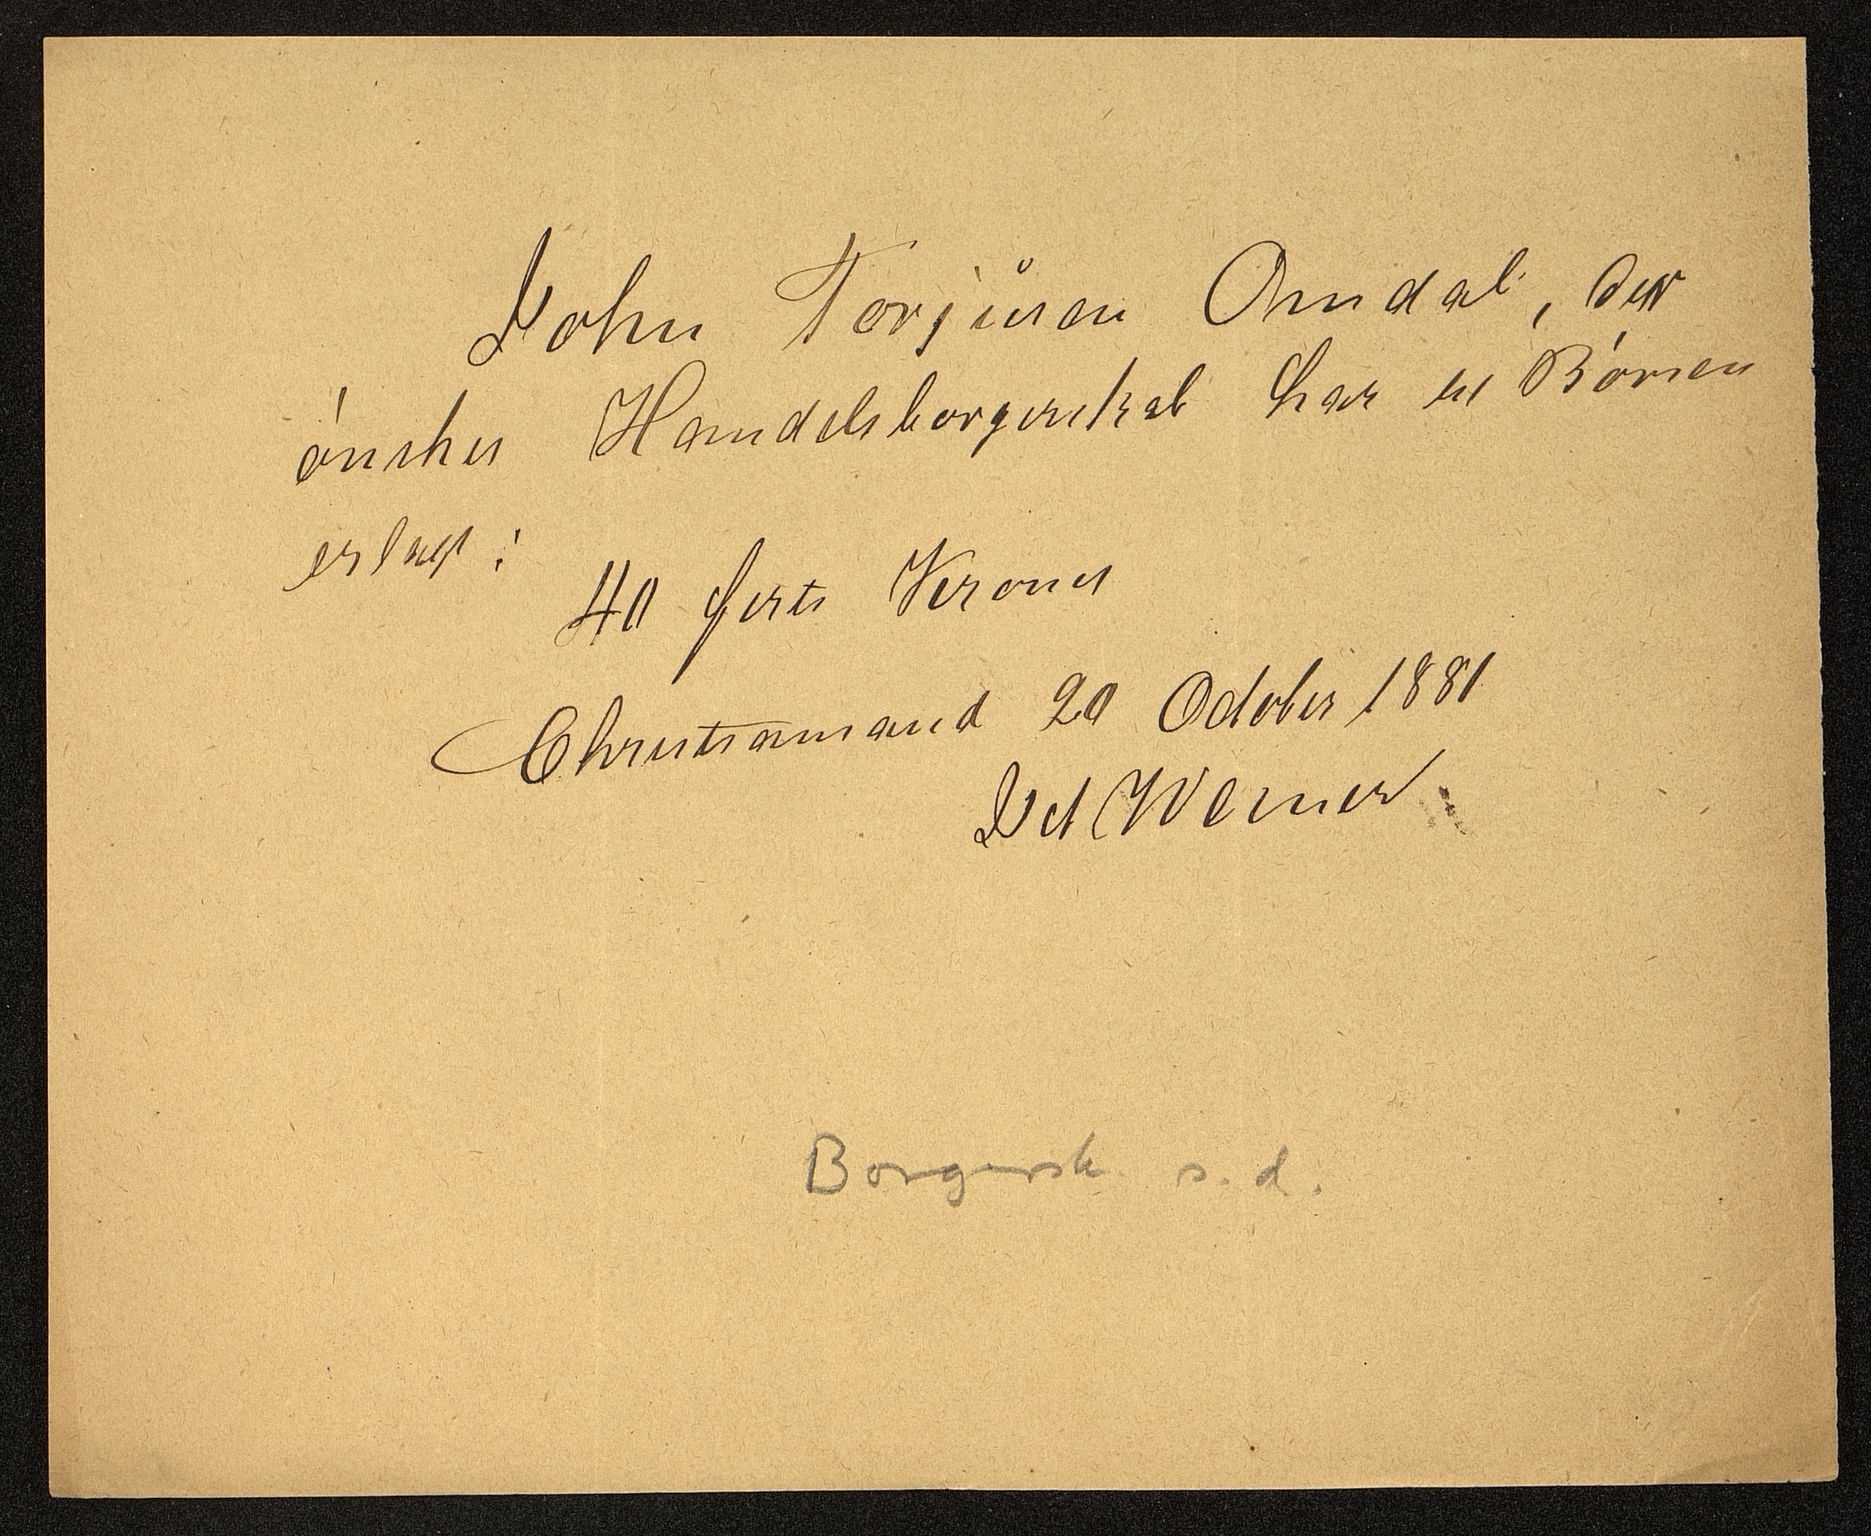 John Torjusen Omdal, der
önsker Handelsborgerskab har til Börsen
erlagt:
40 firti Kroner
Christianssand 20 October 1881
Werner
Borgersk. s. d.